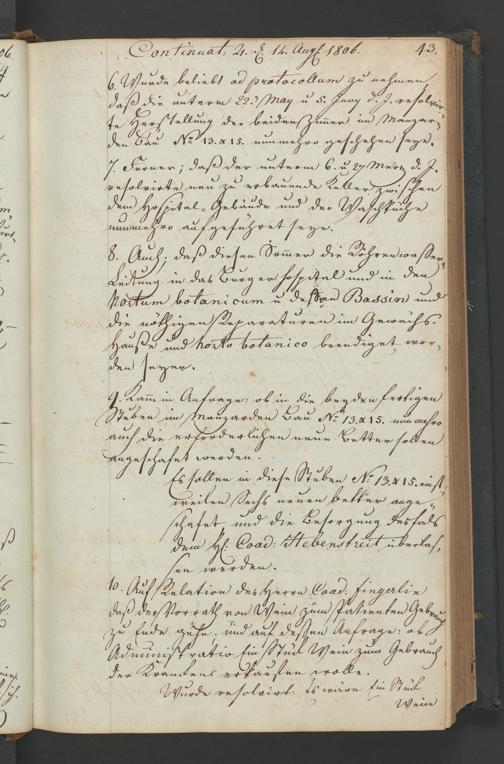 Continuat: 21. d. 14. Augt 1806. 43.
6. Wurde beliebt ad protocollum zu nehmen,
daß die unterm 22. May u 5. Juny d. J. resolvir-
te Herstellung der beiden Zimmer im Manzar-
den Bau No 13. & 15. nunmehro geschehen seye.
7. Ferner; daß der unterm 6. u 27 Merz d. J.
resolvirte neu zu erbauende Keller zwischen
dem Hospital-Gebäude und der Waschküche
nunmehro aufgeführet seye.
8. Auch; daß diesen Sommer die Röhrenwaßer-
Leitung in das Burger hospital und in den
hortum botanicum u deßen Bassin und
die nöthigen Reparaturen im Gewächs-
Hauße und horto botanico beendiget wor-
den seyen.
9. Kam in Anfrage: ob in die beyden fertigen
Stuben im Manzarden Bau No 13. & 15. nunmehro
auch die erforderlichen neue Better sollen
angeschafet werden.
Es sollen in diese Stuben No 13. & 15. einst-
weilen Sechs neuen better ange-
schafet und die Besorgung desfals
dem H. Coad: Hebenstreit überlas-
sen werden.
10. Auf Relation des Herrn Coad. Fingerlin
daß der Vorrath von Wein zum Patienten Gebrauch
zu Ende gehe. und auf deßen Anfrage: ob
Administratio Ein Stück Wein zum Gebrauch
der Kranken erkaufen wolle.
Wurde resolvirt. Es wäre Ein Stück
Wein